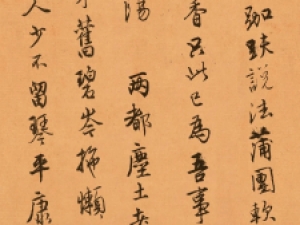 跏趺說法蒲團軟
香只此已為吾事
湯 兩都塵土
舊碧岑拖懶
人少不留琴平康